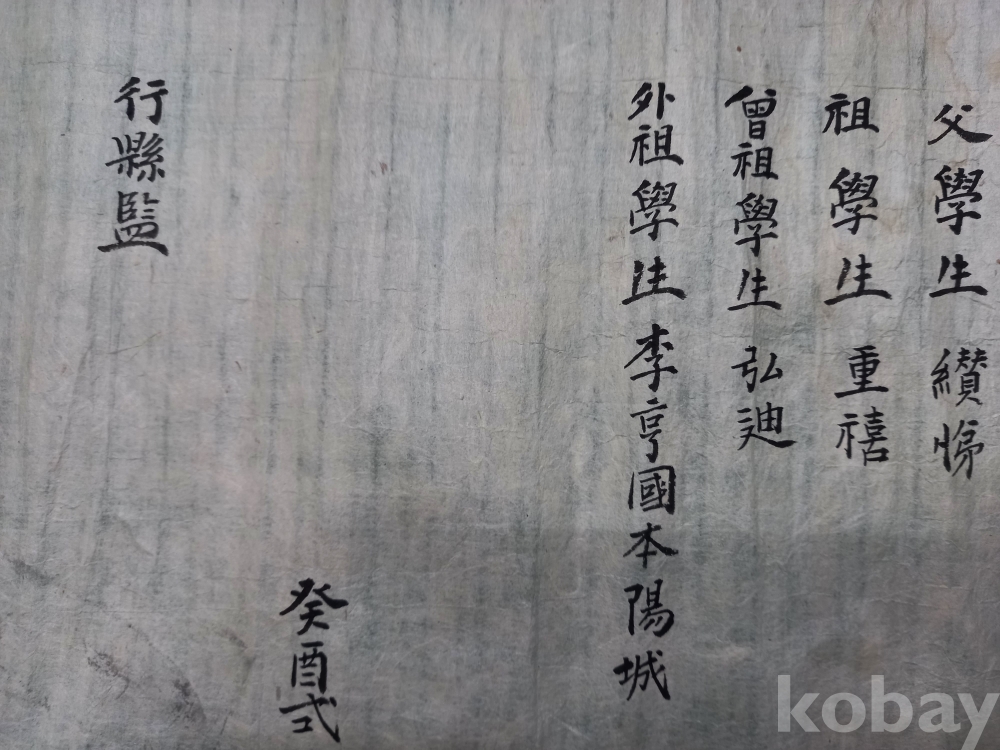 父學生 纉悌
祖學生 重禧
曾祖學生 弘迪
外祖學生李亨國本陽城
癸酉式
行縣監
kobay